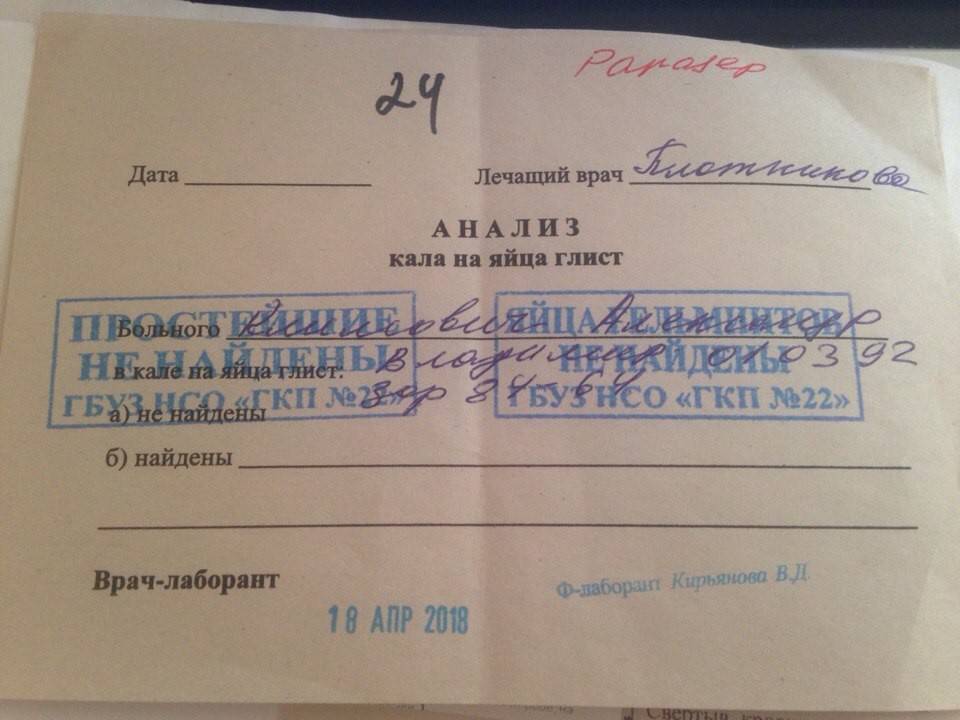 24
Дата
Лечащий врач Плотникова
АНАЛИЗ
кала на яйца глист
ПРОСТЕЙШИЕ
НЕ НАЙДЕНЫ
ГБУЗ НСО «ГКП №22»
ЯЙЦА ГЕЛЬМИНТОВ
НЕ НАЙДЕНЫ
ГБУЗ НСО «ГКП №22»
Больного Александр
в кале на яйца глист: Владимир 01 03 92
а) не найдены
б) найдены
Врач-лаборант
Ф-лаборант Кирьянова В.Д.
18 АПР 2018